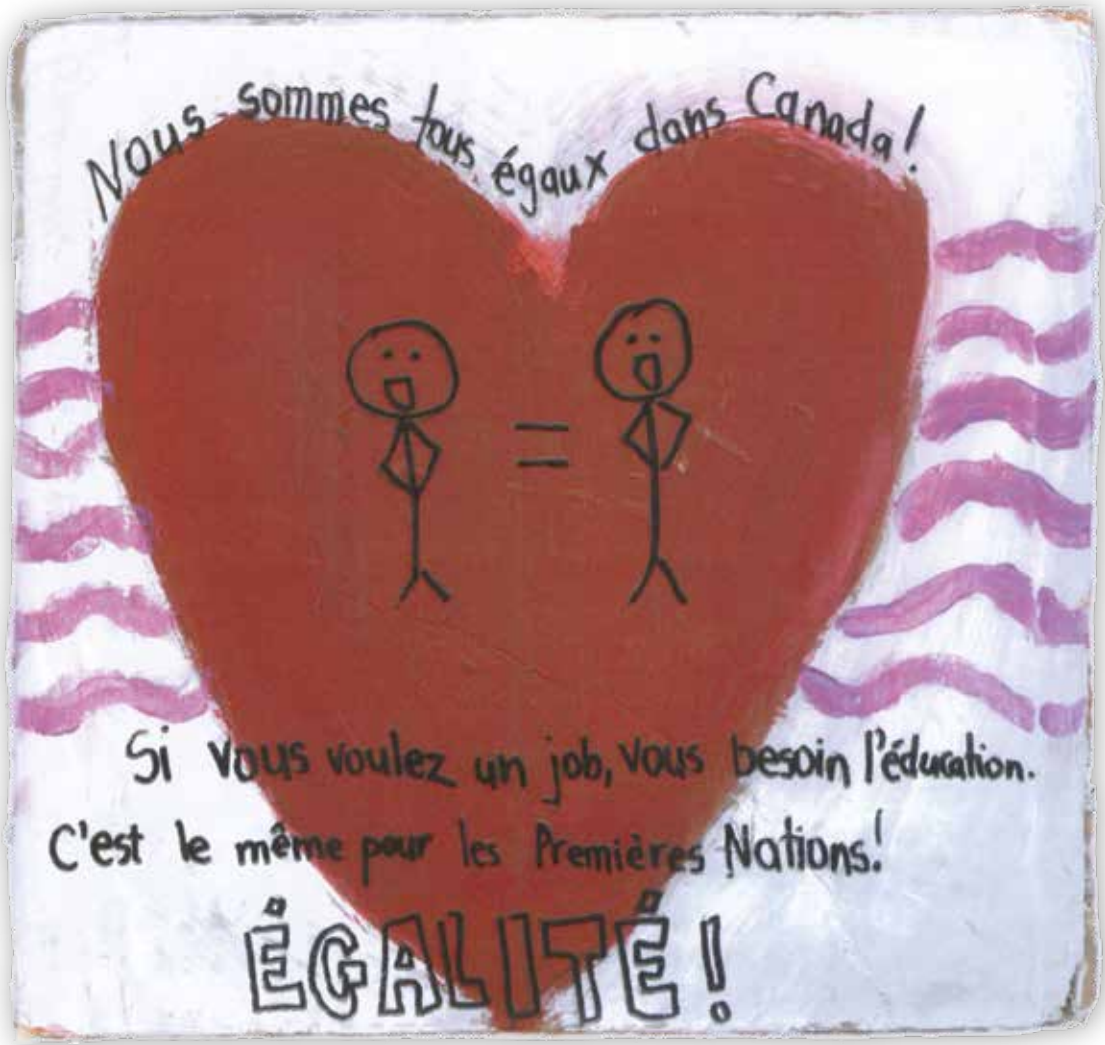 Nous sommes tous égaux dans Canada!
=
Si vous voulez un job, vous besoin l'éducation.
C'est le même pour les Premières Nations!
ÉGALITÉ!